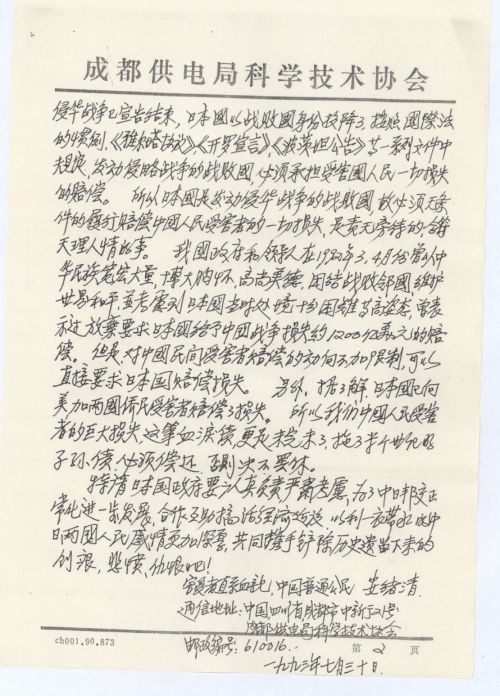 成都供电局科学技术协会
侵华战争已宣告结束，日本國以战败国身份投降了，按照國際法
的惯例，《雅尔塔协议》《开罗宣言》《波茨坦公告》等一系列文件中
规定，发动侵略战争的战败國，必须承担受害國人民一切损失
的赔偿。 所以日本國是发动侵华战争的战败國，故必须无条
件的履行赔偿中國人民受害者的一切损失，是责无旁待的，合符
天理人情的事。 我國政府和领导人在1972年3、4月份曾以中
华民族宽宏大量，博大胸怀，高尚美德，团结战败邻國，维护
世界和平並考慮到日本國当时处境十分困難等高姿态，曾表
示过放棄要求日本國给予中國战争损失约1200亿美元的赔
偿。 但是，对中國民间受害者赔偿的动向不加限制，可以
直接要求日本国赔偿损失。 另外，据了解，日本國已向
美加两國侨民受害者赔偿了损失。 所以我们中國人民受害
者的巨大损失，这筆血淚债，更是未完未了，拖了半个世纪的
子孙债必须偿还，否则决不罢休。
特请日本国政府要认真负责严肃考慮，为了中日邦交正
常化进一步发展，合作互助搞活经济建设，以利一衣带水的中
日两國人民感情更加深蒂，共同携手铲除历史遗留下来的
创浪，悲愤、仇恨吧！
受害者直系血親，中國普通公民 安绪清
通信地址：中国四川省成都市中新街21号
成都供电局科学技术协会
邮政编号：610016
ch001.90.873
第 2 页
一九九三年七月三十日